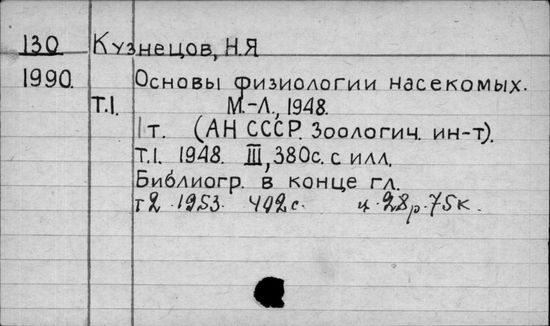 130 Кузнецов, Н.Я
1990. Основы физиологии насекомых.
Т.I. М.-Л., 1948.
1т. (АН СССР. Зоологич. ин-т).
Т.I. 1948. III, 380с. с илл.
Библиогр. в конце гл.
т 2. 1953. 402 с. ц. 28р. 75к.